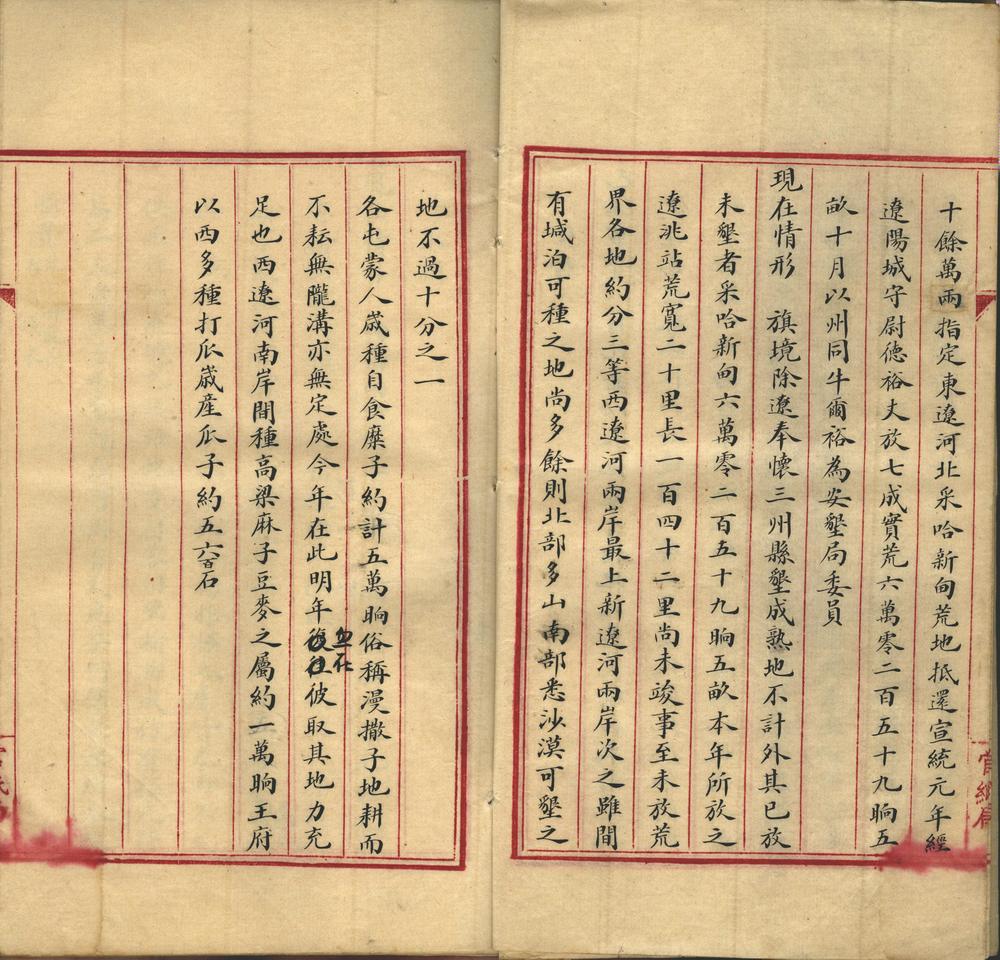 十餘萬兩指定東遼河北采哈新甸荒地抵還宣統元年經
遼陽城守尉德裕丈放七成實荒六萬零二百五十九晌五
畝十月以州同牛爾裕為安墾局委員
現在情形 旗境除遼奉懷三州縣墾成熟地不計外其已放
未墾者采哈新甸六萬零二百五十九晌五畝本年所放之
遼洮站荒寬二十里長一百四十二里尚未竣事至未放荒
界各地約分三等西遼河兩岸最上新遼河兩岸次之雖間
有城泊可種之地尚多餘則北部多山南部悉沙漠可墾之
地不過十分之一
各屯蒙人歲種自食糜子約計五萬晌俗稱漫撒子地耕而
不耘無隴溝亦無定處今年在此明年復往彼取其地力充
足也西遼河南岸間種高梁麻子豆麥之屬約一萬晌王府
以西多種打瓜歲産瓜子約五六百石